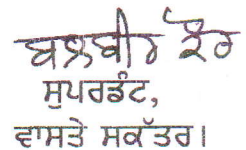 ਬਲਬੀਰ ਕੌਰ
ਸੁਪਰਡੰਟ,
ਵਾਸਤੇ ਸਕੱਤਰ।